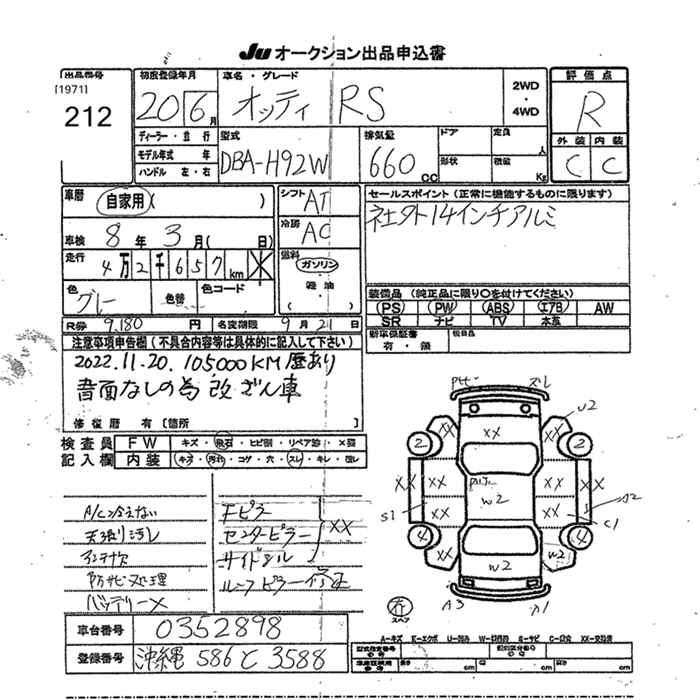 JU オークション出品申込書
出品番号
[1971]
212
初度登録年月
20 6月
車名・グレード
オッティ RS
2WD
・
4WD
評価点
R
外装 内装
C C
ディーラー・並行
モデル年式 年
ハンドル 左・右
型式
DBA-H92W
排気量
660 CC
ドア
形状
定員 人
積載 Kg
車歴
自家用 ( )
シフト AT
車検 8年 3月( 日)
冷房 AC
走行 4万2千657km
燃料
ガソリン
軽油
( )
色
グレー
色替
色コード
R券 9,180 円
名変期限 9月21日
セールスポイント(正常に機能するものに限ります)
社外14インチアルミ
装備品(純正品に限り○を付けてください)
PS PW ABS エアB AW
SR ナビ TV 本革
新車保証書
有・無
欠品目品
注意事項申告欄(不具合内容等は具体的に記入して下さい)
2022.11.20. 105000KM歴あり
書面なしの為 改ざん車
修復歴 有[箇所 ]
検査員
記入欄
FW キズ・飛石・ヒビ割・リペア跡・X要
内装 キズ・汚れ・コゲ・穴・スレ・キレ・
A/C冷えない
天張り汚レ
内チ欠
防サビ処理
バッテリーX
Fピラー
センターピラー
サイドシル
XX
ルーフピラー修正
車台番号 0352898
登録番号 沖縄 586 と 3588
ズレ
U2
XX
2
2
XX
XX
XX
XX
W2
XX
XX
A2
S1
XX
XX
C1
4
4
XX
W2
W2
A3
A1
スペア
A-キズ E-エクボ U-凹み W-補修跡 S-サビ C-腐食 XX-交換済
型式指定番号
類別区分番号
車庫証明用
長さ cm 巾 cm 高さ cm